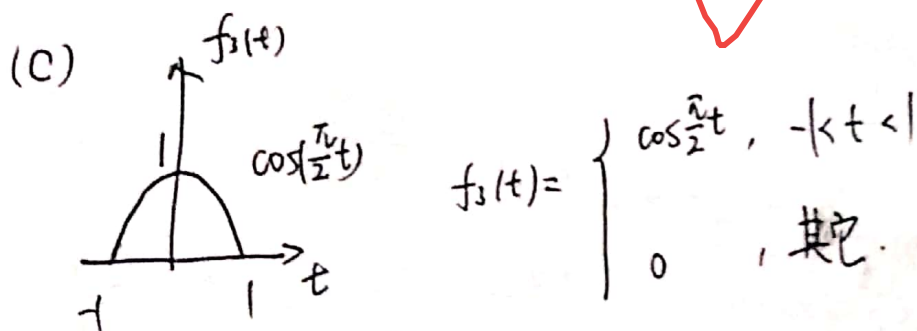 (C)
f₃(t)
1
cos(π/2 t)
-1
1
t
f₃(t)= { cos π/2 t , -1<t<1
0 , 其它.